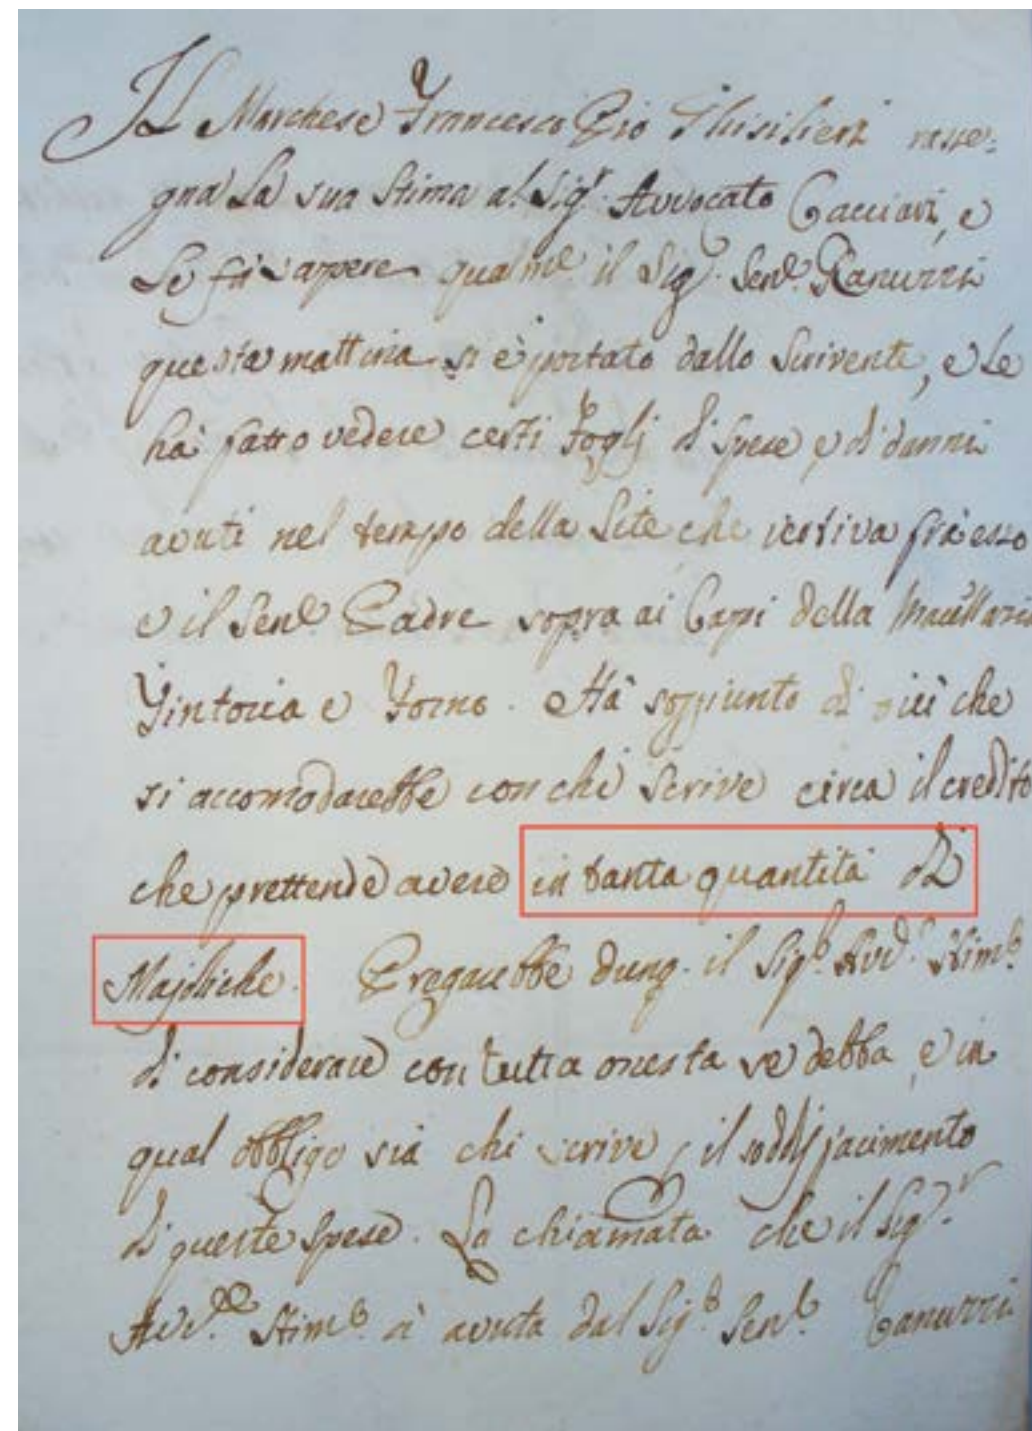 Il Marchese Francesco Pio Ghisilieri rasse=
gna La sua Stima al Sig.r Avvocato Cacciari, e
Le fà sapere qualm.e il Sig.r Sen.e Ranuzzi
questa mattina si è portato dallo Scrivente, e Le
hà fatto vedere certi Foglj di Spese e di danni
avuti nel tempo della Lite che vertiva frà esso
e il Sen.e Padre sopra ai Capi della
Tintoria e Forno. Hà soggiunto di più che
si accomodarebbe con chi Scrive circa il credito
che prettende avere in tanta quantità di
Majoliche. Pregarebbe dunq. il Sig.r Avv.o Stim.o
di considerare con tutta onesta se debba, e in
qual obbligo sia chi scrive, il soddisfacimento
di queste Spese. La chiamata che il Sig.r
Avv.o Stim.o à avuta dal Sig.r Sen.e Ranuzzi